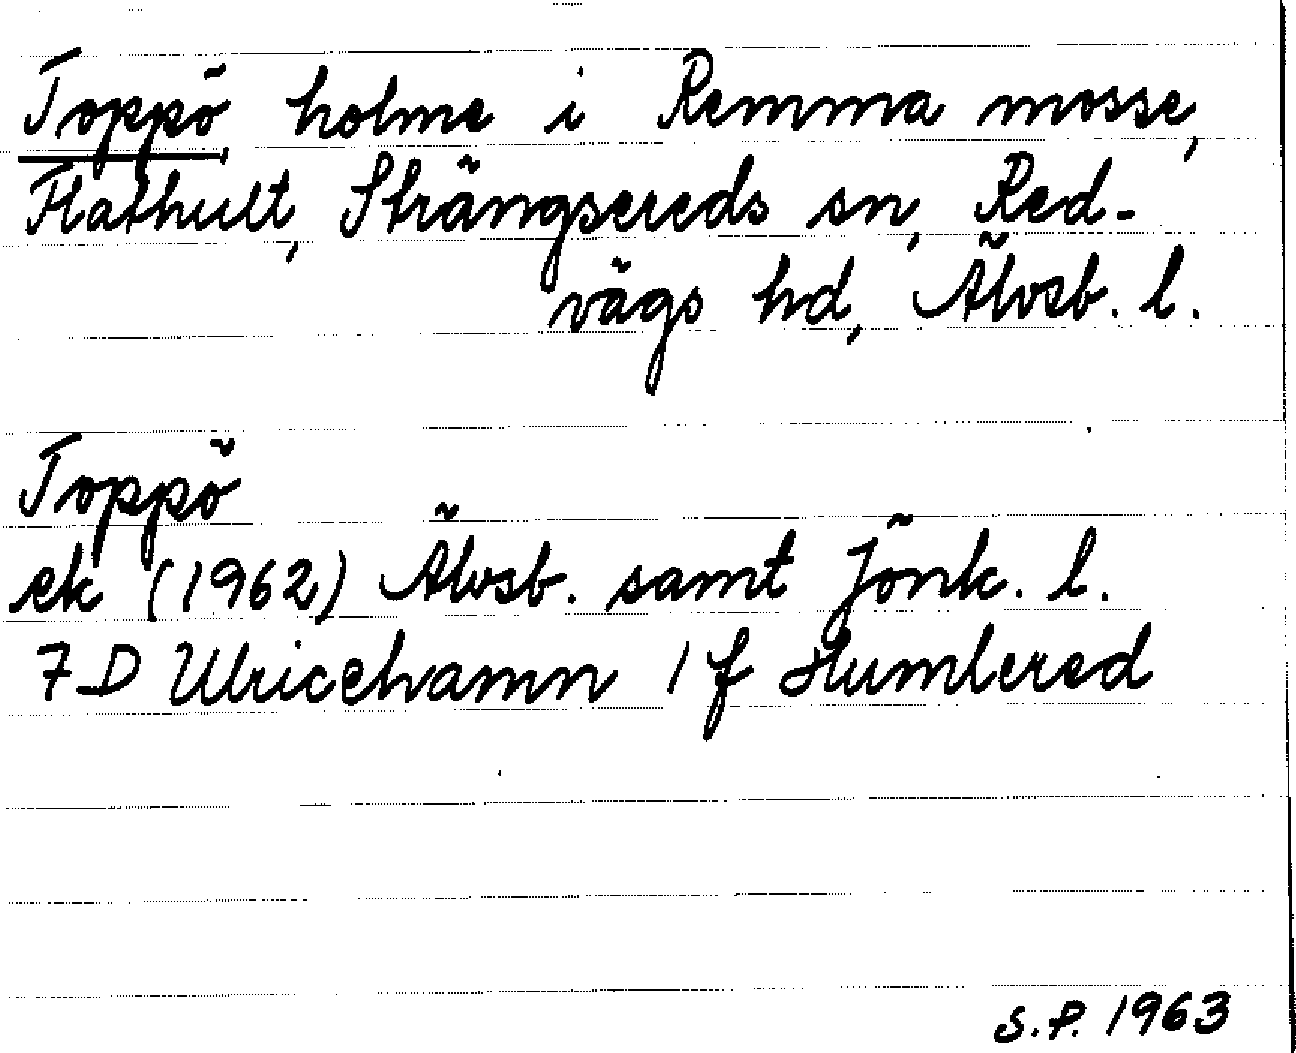 Toppö, holme i Remma mosse,
Flathult, Strängsereds sn, Red-
vägs hd, Älvsb. l.
Toppö
ek (1962) Älvsb. samt Jönk. l.
7D Ulricehamn 1 f Humlered
S.P. 1963